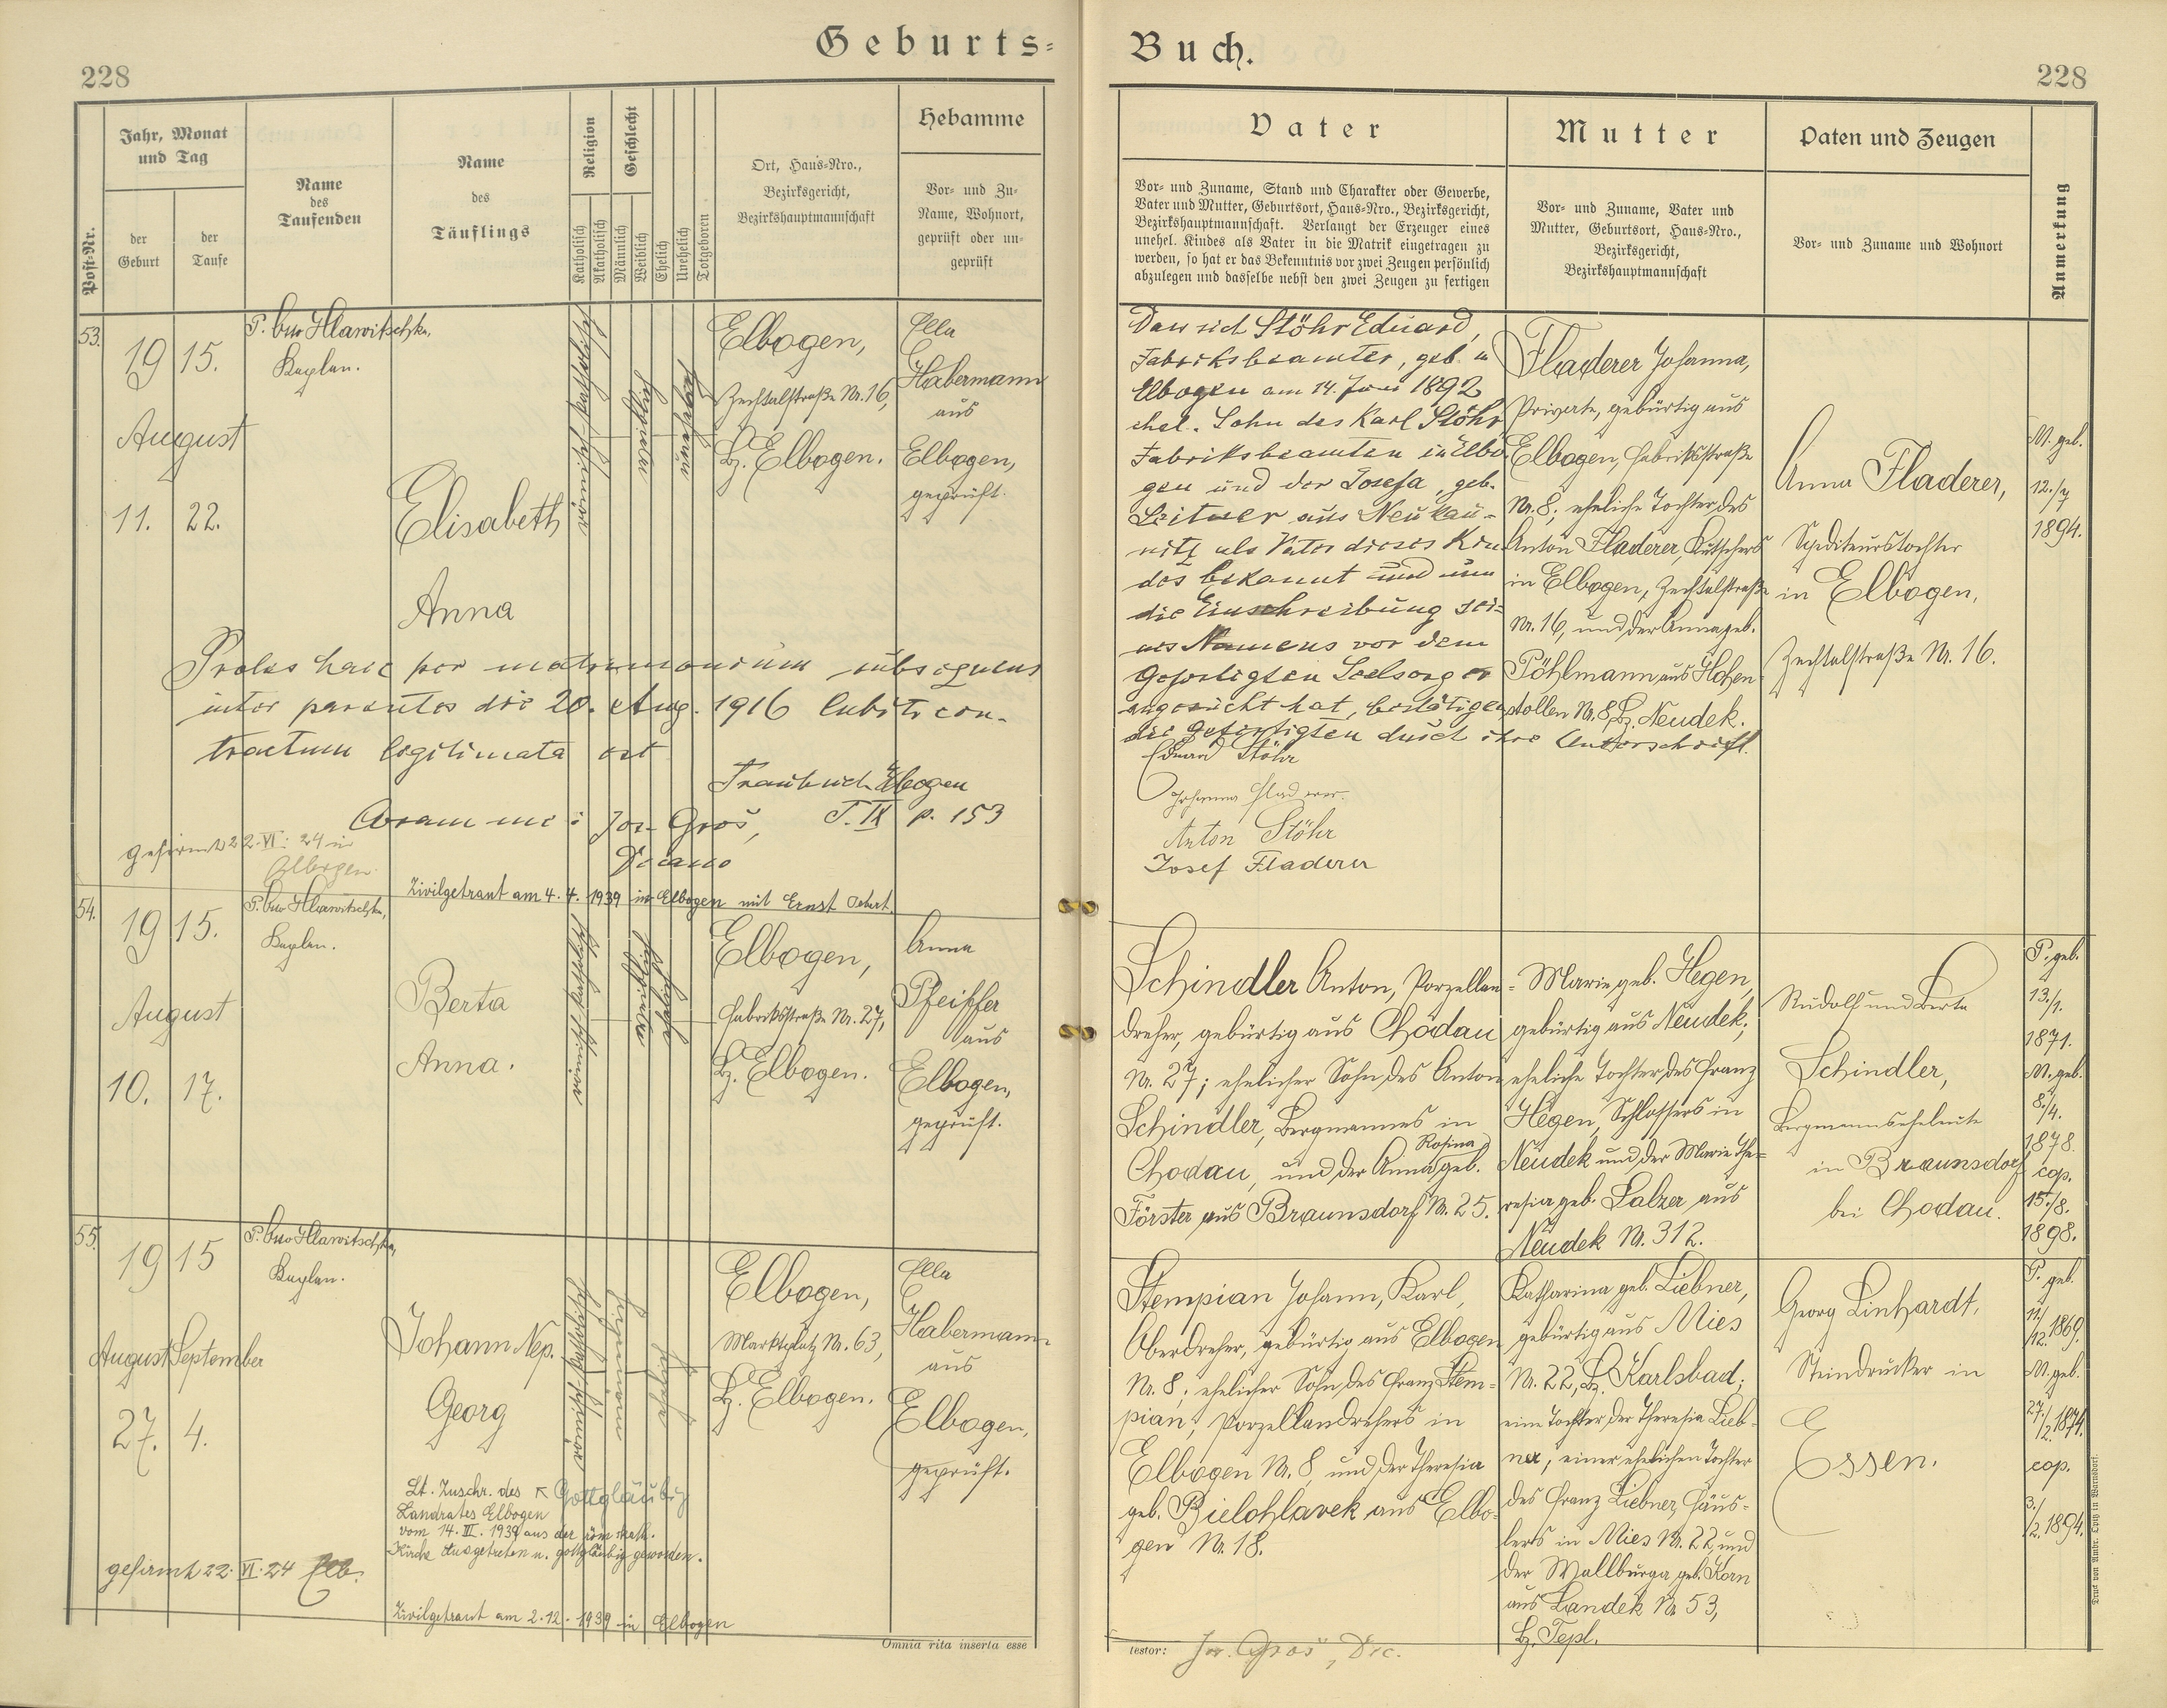 Geburts-
Buch.
228
228
Post-Nr.
Jahr, Monat
und Tag
der
Geburt
der
Taufe
Name
des
Taufenden
Name
des
Täuflings
Religion
Katholisch
Akatholisch
Geschlecht
Männlich
Weiblich
Ehelich
Unehelich
Totgeboren
Ort, Haus-Nro.,
Bezirksgericht,
Bezirkshauptmannschaft
Hebamme
Vor- und Zu-
Name, Wohnort,
geprüft oder un-
geprüft
Vater
Vor- und Zuname, Stand und Charakter oder Gewerbe,
Vater und Mutter, Geburtsort, Haus-Nro., Bezirksgericht,
Bezirkshauptmannschaft. Verlangt der Erzeuger eines
unehel. Kindes als Vater in die Matrik eingetragen zu
werden, so hat er das Bekenntnis vor zwei Zeugen persönlich
abzulegen und dasselbe nebst den zwei Zeugen zu fertigen
Mutter
Vor- und Zuname, Vater und
Mutter, Geburtsort, Haus-Nro.,
Bezirksgericht,
Bezirkshauptmannschaft
Paten und Zeugen
Vor- und Zuname und Wohnort
Anmerkung
53.
19 15.
August
11. 22.
P. Hlawitschka,
Kaplan.
Elisabeth
Anna
römisch-katholisch
weiblich
unehelich
Elbogen,
Zechtalstraße Nr. 16,
Bz. Elbogen.
Ella
Habermann
aus
Elbogen,
geprüft.
Proles haec per matrimonium subsequens
inter parentes die 20. Aug. 1916 Cubiti con-
tractum legitimata est
Traubuch Elbogen
T. IX p. 153
Coram me: Jos. Groš,
Decano
gefirmt 22. VI. 24 in
Elbogen.
Zivilgetraut am 4. 4. 1939 in Elbogen mit Ernst
Dass sich Stöhr Eduard,
Fabriksbeamter, geb. in
Elbogen am 14. Juni 1892
ehel. Sohn des Karl Stöhr,
Fabriksbeamten in Elbo-
gen und der Josefa, geb.
Leitner aus Neukau-
nitz als Vater dieses Kin-
des bekannt und um
die Einschreibung sei-
nes Namens vor dem
Gefertigten Seelsorger
angesucht hat, bestätigen
die Gefertigten durch ihre Unterschrift.
Eduard Stöhr
Johanna Fladerer.
Anton Stöhr
Josef Fladerer
Fladerer Johanna,
Private, gebürtig aus
Elbogen, Fabriksstraße
Nr. 8; eheliche Tochter des
Anton Fladerer, Kutschers
in Elbogen, Zechtalstraße
Nr. 16, und der Anna geb.
Pöhlmann aus Hohen-
stollen Nr. 8, Bz. Neudek.
Anna Fladerer,
Spediteurstochter
in Elbogen,
Zechtalstraße Nr. 16.
M. geb.
12./7
1894.
54.
19 15.
August
10. 17.
P. Hlawitschka,
Kaplan.
Berta
Anna.
römisch-katholisch
weiblich
ehelich
Elbogen,
Fabriksstraße Nr. 27,
Bz. Elbogen.
Anna
Pfeiffer
aus
Elbogen,
geprüft.
Schindler Anton, Porzellan-
dreher, gebürtig aus Chodau
Nr. 27; ehelicher Sohn des Anton
Schindler, Bergmannes in
Chodau, und der Anna Rosina geb.
Förster aus Braunsdorf Nr. 25.
Marie geb. Hegen,
gebürtig aus Neudek;
eheliche Tochter des Franz
Hegen, Schlossers in
Neudek und der Marie The-
resia geb. Salzer aus
Neudek Nr. 312.
Rudolf und Berta
Schindler,
Bergmannseheleute
in Braunsdorf
bei Chodau.
P. geb.
13./1.
1871.
M. geb.
8./4.
1878.
cop.
15./8.
1898.
55.
19 15
August September
27. 4.
P. Hlawitschka,
Kaplan.
Johann Nep.
Georg
römisch-katholisch
männlich
ehelich
Elbogen,
Marktplatz Nr. 63,
Bz. Elbogen.
Ella
Habermann
aus
Elbogen,
geprüft.
Lt. Zuschr. des Gottgläubig
Landrates Elbogen
vom 14. III. 1939 aus der röm. kath.
Kirche Ausgetreten u. gottgläubig geworden.
gefirmt 22. VI. 24 Elb.
Zivilgetraut am 2. 12. 1939 in Elbogen
Stempian Johann, Karl,
Oberdreher, gebürtig aus Elbogen
Nr. 8; ehelicher Sohn des Franz Stem-
pian, Porzellandrehers in
Elbogen Nr. 8, und der Theresia
geb. Bielohlavek aus Elbo-
gen Nr. 18.
Katharina geb. Liebner,
gebürtig aus Mies
Nr. 22, Bz. Karlsbad;
eine Tochter der Theresia Lieb-
ner, einer ehelichen Tochter
des Franz Liebner, Häus-
lers in Mies Nr. 22, und
der Wallburga geb. Korn
aus Landek Nr. 53,
Bz. Tepl.
Georg Linhardt,
Steindrucker in
Essen.
P. geb.
11./12. 1869.
M. geb.
27./2. 1874.
cop.
3./2. 1894.
Omnia rita inserta esse
testor: Jos. Groš, Dec.
Druck von Ambr. Opitz in Warnsdorf.